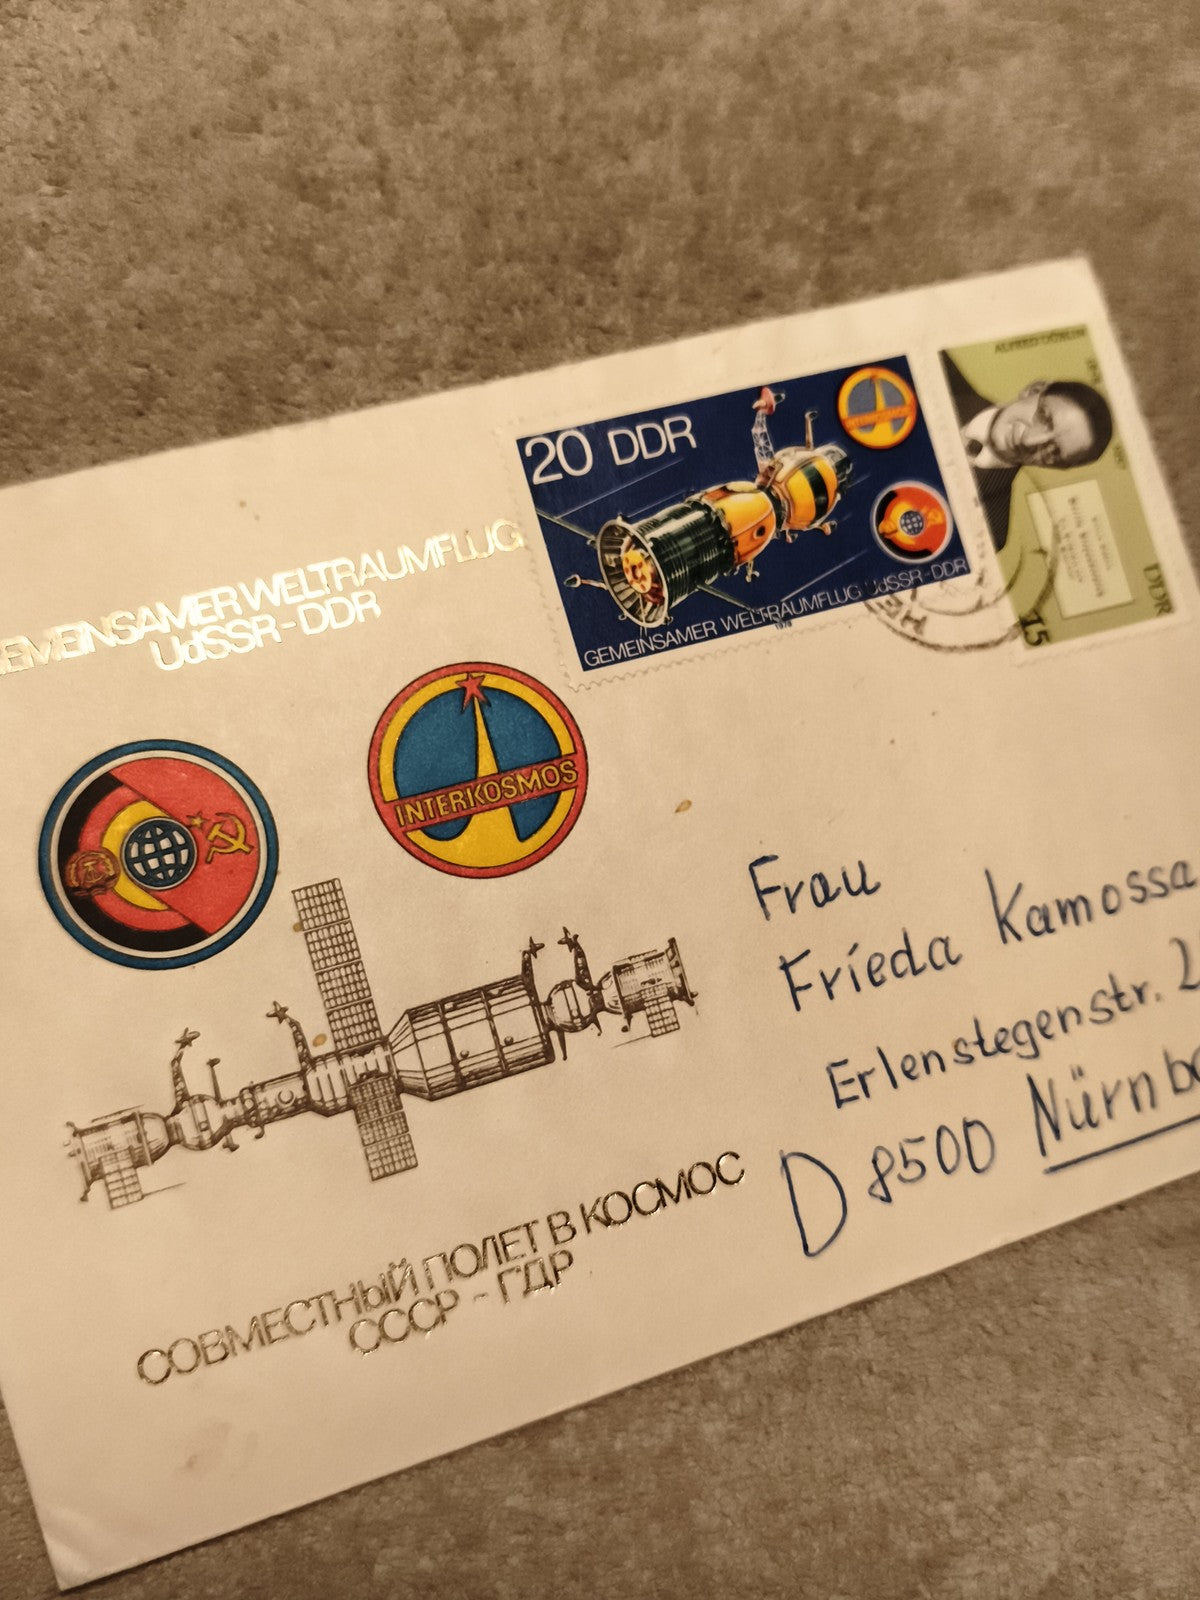 GEMEINSAMER WELTRAUMFLUG
UdSSR-DDR
INTERKOSMOS
СОВМЕСТНЫЙ ПОЛЕТ В КОСМОС
СССР - ГДР
20 DDR
INTERKOSMOS
GEMEINSAMER WELTRAUMFLUG UdSSR-DDR
1978
ALFRED DÖBLIN
DDR
15
Frau
Frieda Kamossa
Erlenstegenstr.
D 8500 Nürnb